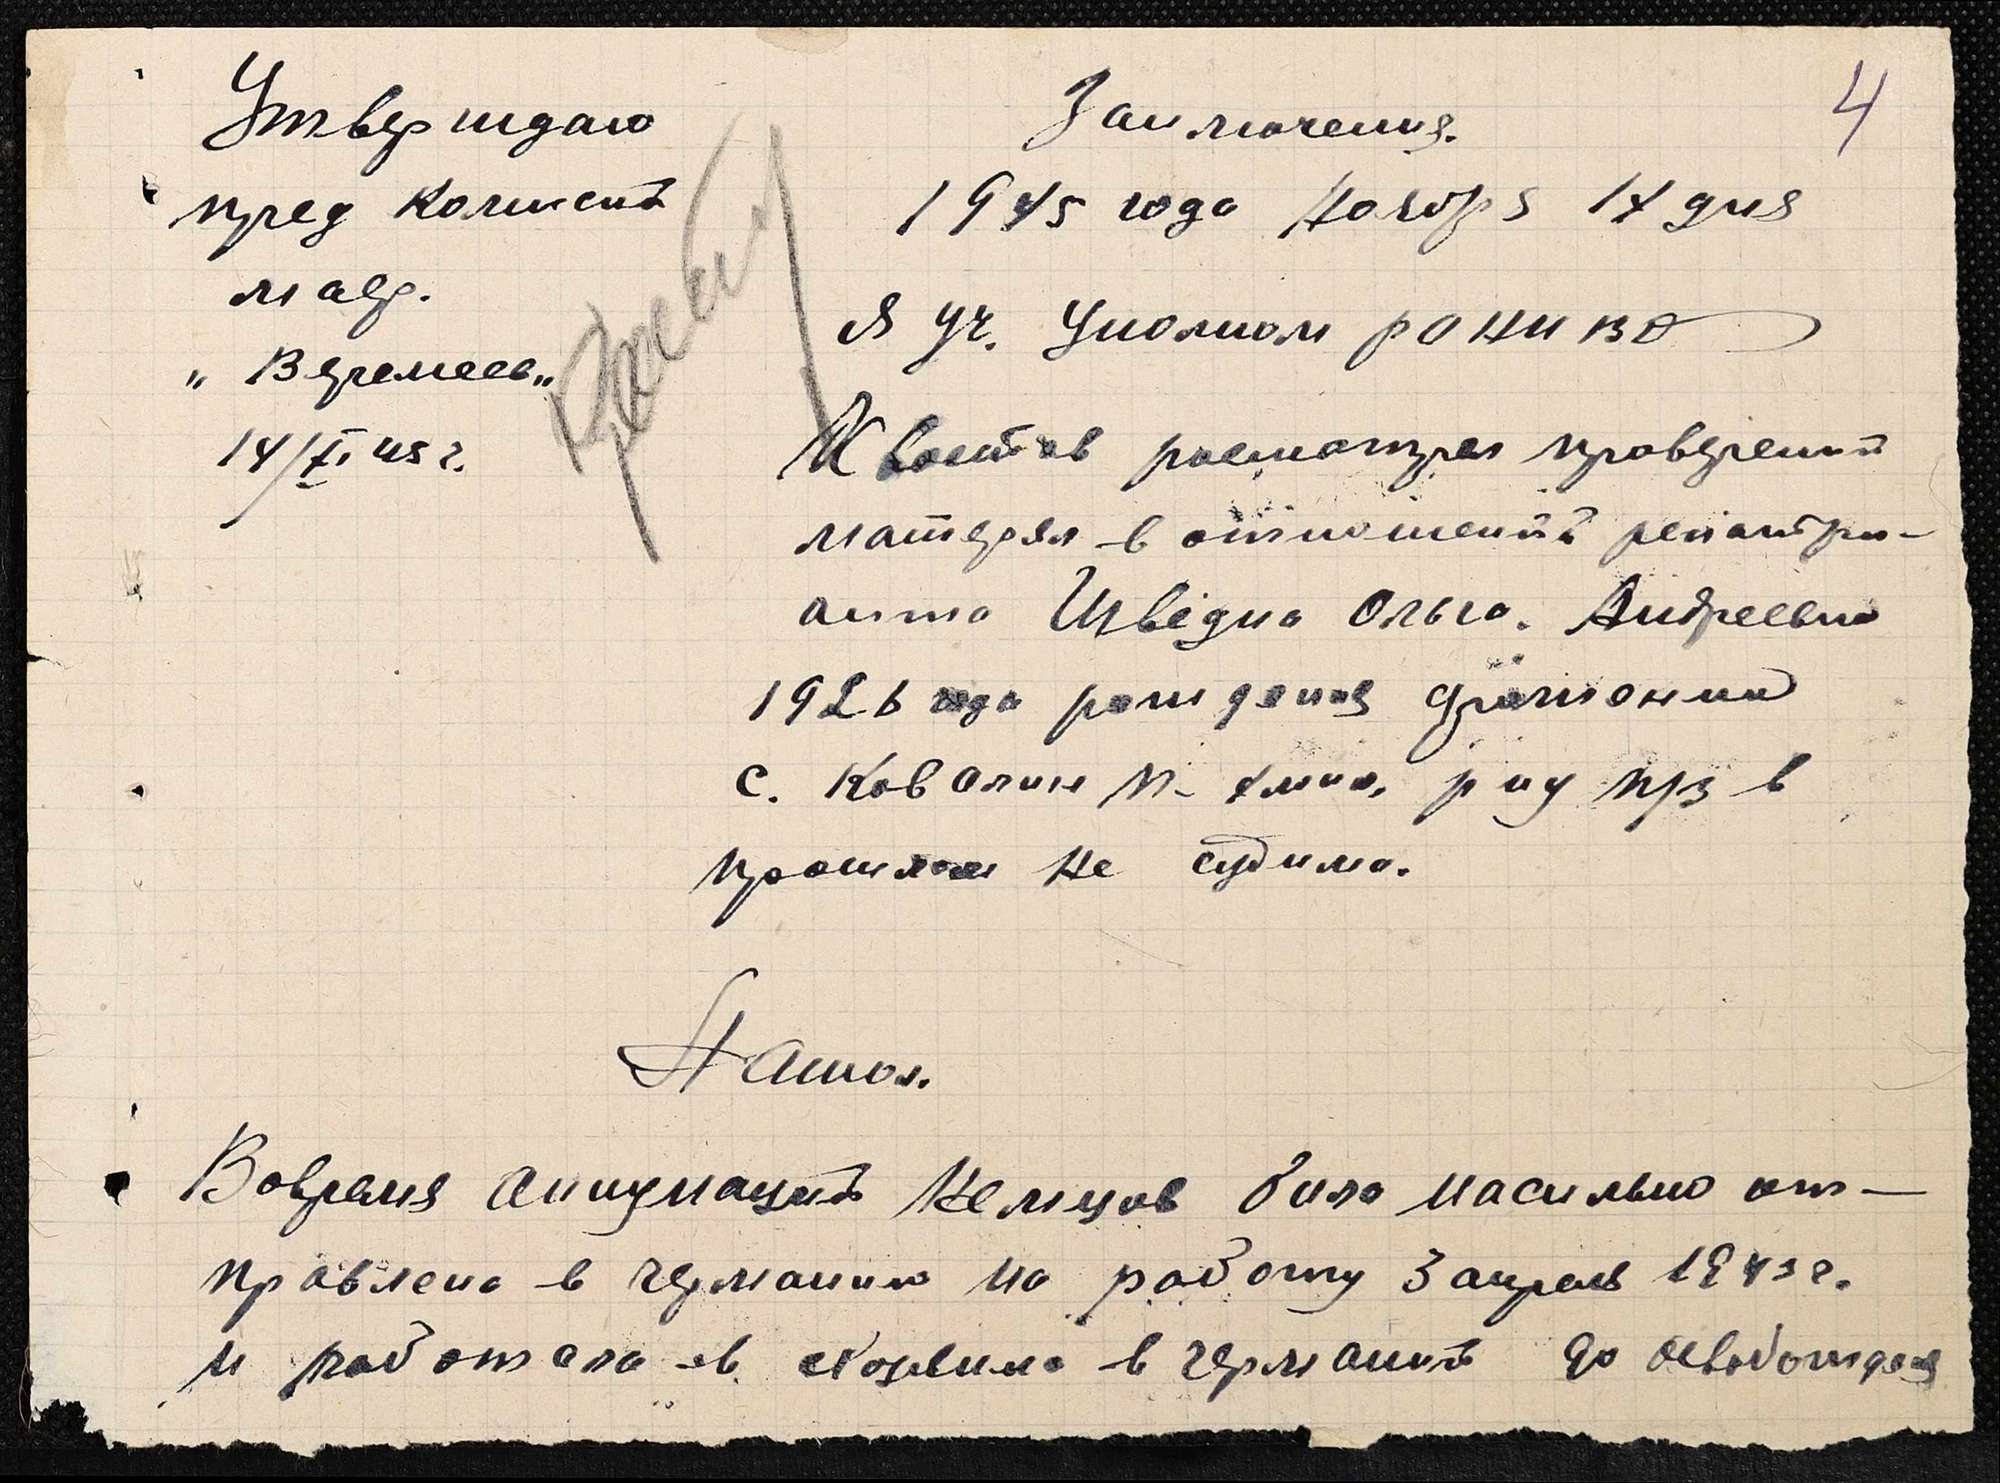 4
Утверждаю
пред комисіі
маер.
„Веремеев„
14/XI 45 г.
Заключения.
1945 года Ноября 14 дня
Я уч. Уполном РО НКВД
Хвостов росмотрел проверений
матерял в отношениі репатри-
анта Швідка Ольга. Андреевна
1926 года рождения
с. Ковалин П- Хмел. р-ну п/з в
прошлом не судима.
Нашол.
Вовремя аккупацыіі Немцов била насильно от-
правлена в германию на работу 3 апреля 1943 г.
и работала в в германиі до освобождения